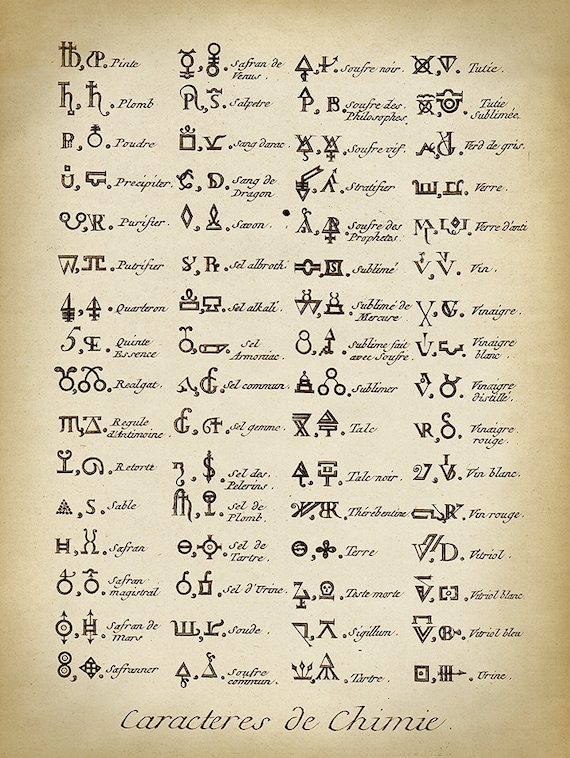 Pinte
Plomb
Poudre
Precipiter.
Purifier.
Putrifier
Quarteron
Quinte
Essence
Realgat.
Regule
d'Antimoine.
Retorte
Sable
Safran
Safran
magistral
Safran de
Mars
Safranner
Safran de
Venus.
Salpetre
Sang darac.
Sang de
Dragon
Savon.
Sel albroth.
Sel alkali.
Sel
Armoniac.
Sel commun.
Sel gemme.
Sel des
Pelerins.
Sel de
Plomb.
Sel de
Tartre.
Sel d'Urine.
Soude.
Soufre
commun.
Soufre noir.
Soufre des
Philosophes.
Soufre vif.
Stratifier
Soufre des
Prophetes.
Sublimé
Sublimé de
Mercure
Sublime fait
avec Soufre.
Sublimer
Talc
Talc noir.
Thérébentine
Terre
Teste morte
Sigillum.
Tartre.
Tutie.
Tutie
Sublimée.
Verd de gris.
Verre.
Verre d'anti
Vin.
Vinaigre.
Vinaigre
blanc.
Vinaigre
distillé.
Vinaigre
rouge.
Vin blanc.
Vin rouge.
Vitriol.
Vitriol blanc
Vitriol bleu
Urine.
Caracteres de Chimie.